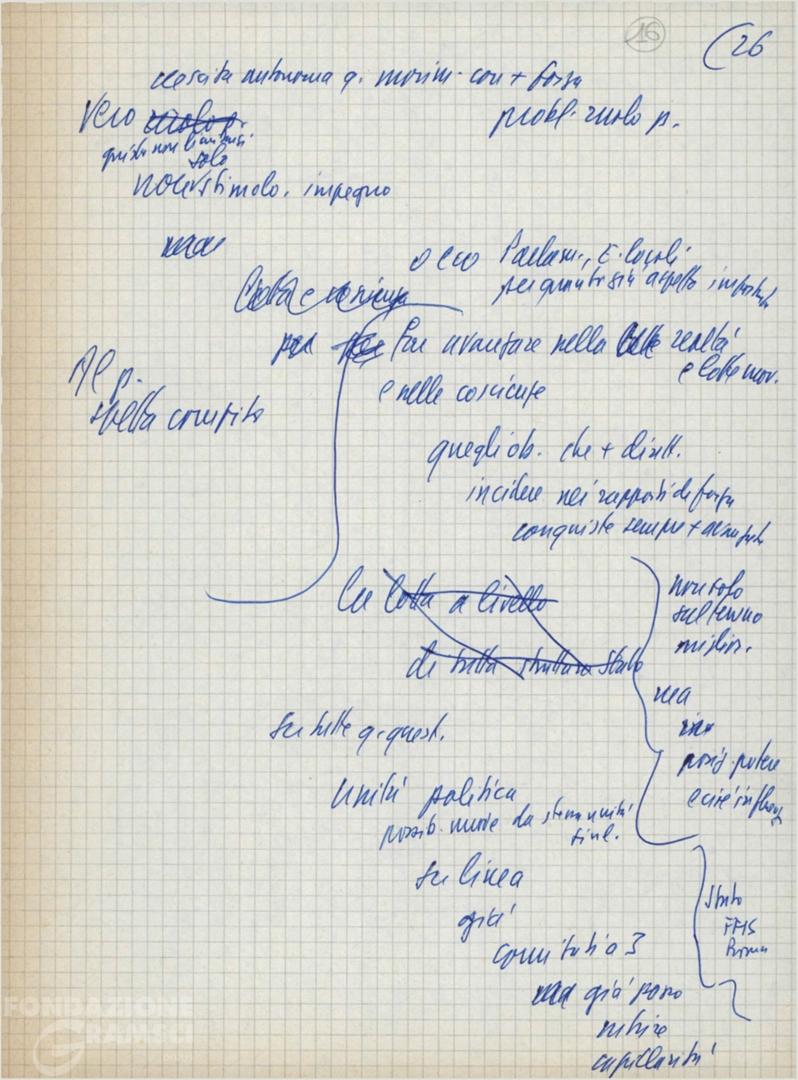 16
26
crescita autonoma q. movim. con + forza
vero ruolo p.
probl. ruolo p.
questo non
solo
stimolo, impegno
ma
o eco Parlam., E. locali
per quanto sia aspetto importante
Lotta e
per far avanzare nella realtà
e lotte mov.
e nelle coscienze
Al p.
spetta compito
quegli ob. che + dirett.
incidere nei rapporti di forza
conquiste sempre + avanzate
La lotta a livello
di tutta struttura Stato
non solo
sul terreno
miglior.
ma
in
posiz. potere
e cioè influenza
Su tutte q. quest.
Unità politica
possib. nuove da stessa unità
sind.
su linea
già
comitati a 3
ma già posso
nutrire
capillarità
Stato
FFSS
Roma
FONDAZIONE
GRAMSCI